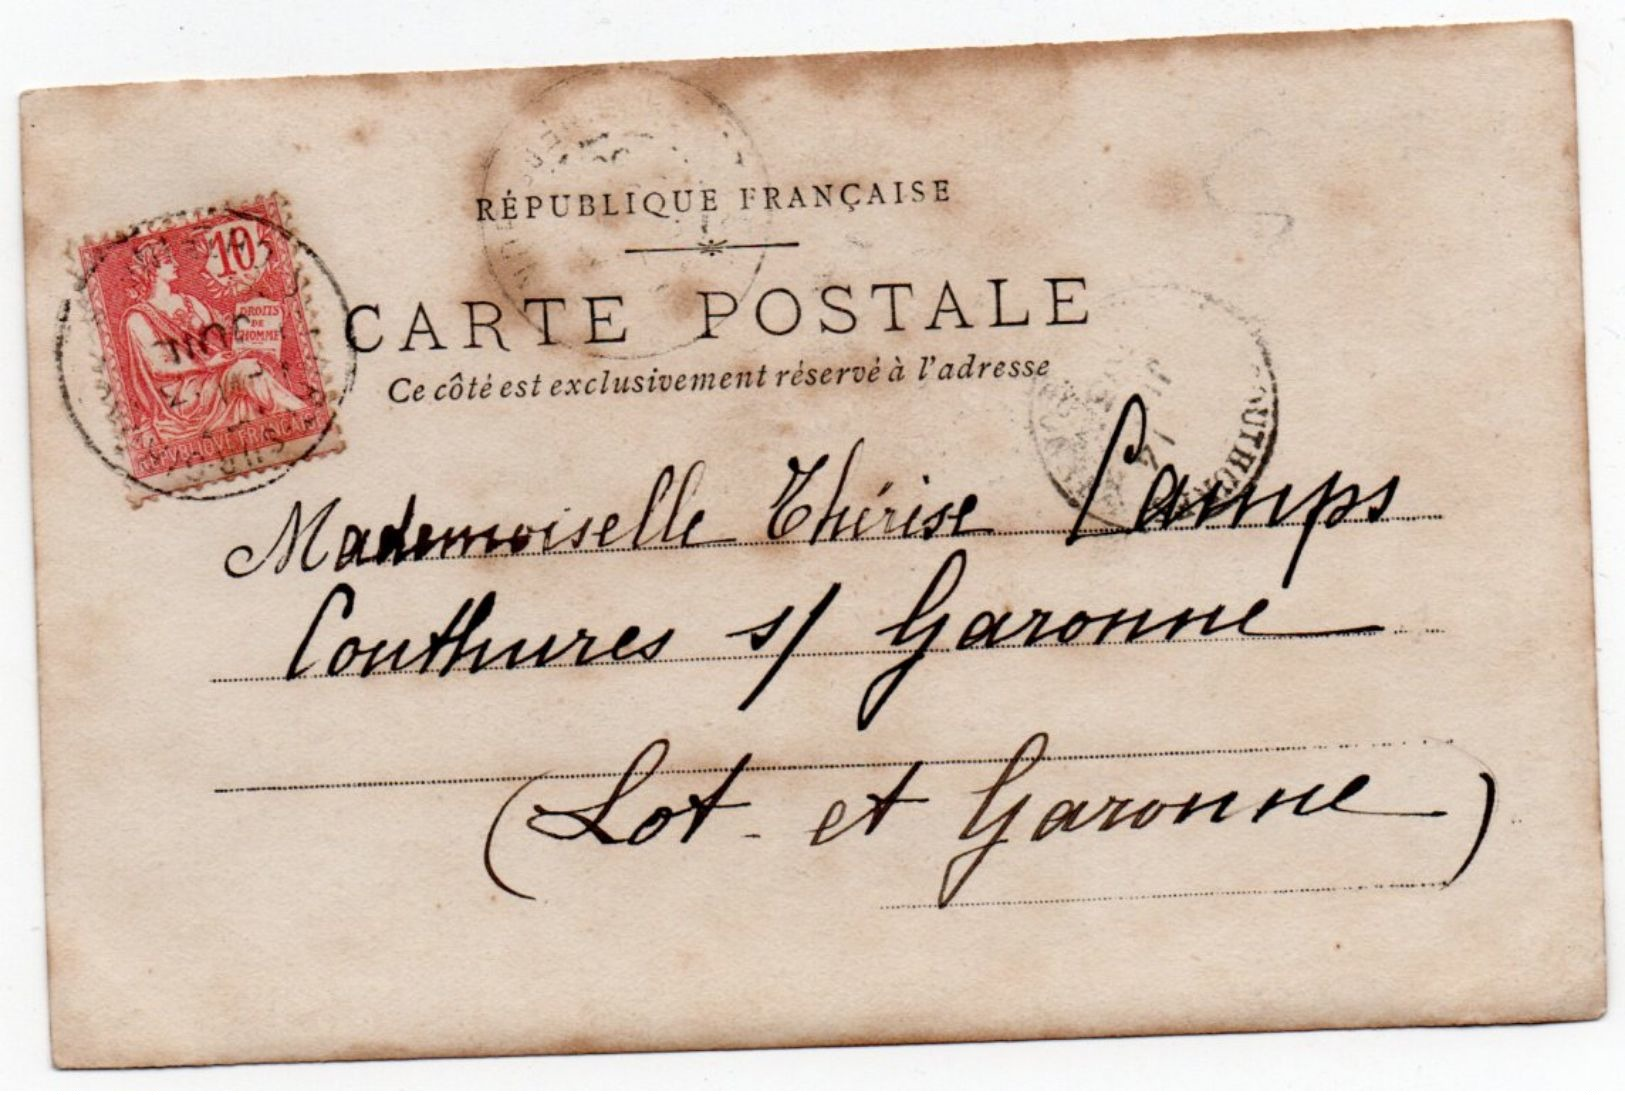 RÉPUBLIQUE FRANÇAISE
10
DROITS
DE
L'HOMME
RÉPUBLIQUE FRANÇAISE
CARTE POSTALE
Ce côté est exclusivement réservé à l'adresse
Mademoiselle Thérèse Camps
Couthures s/ Garonne
(Lot et Garonne)